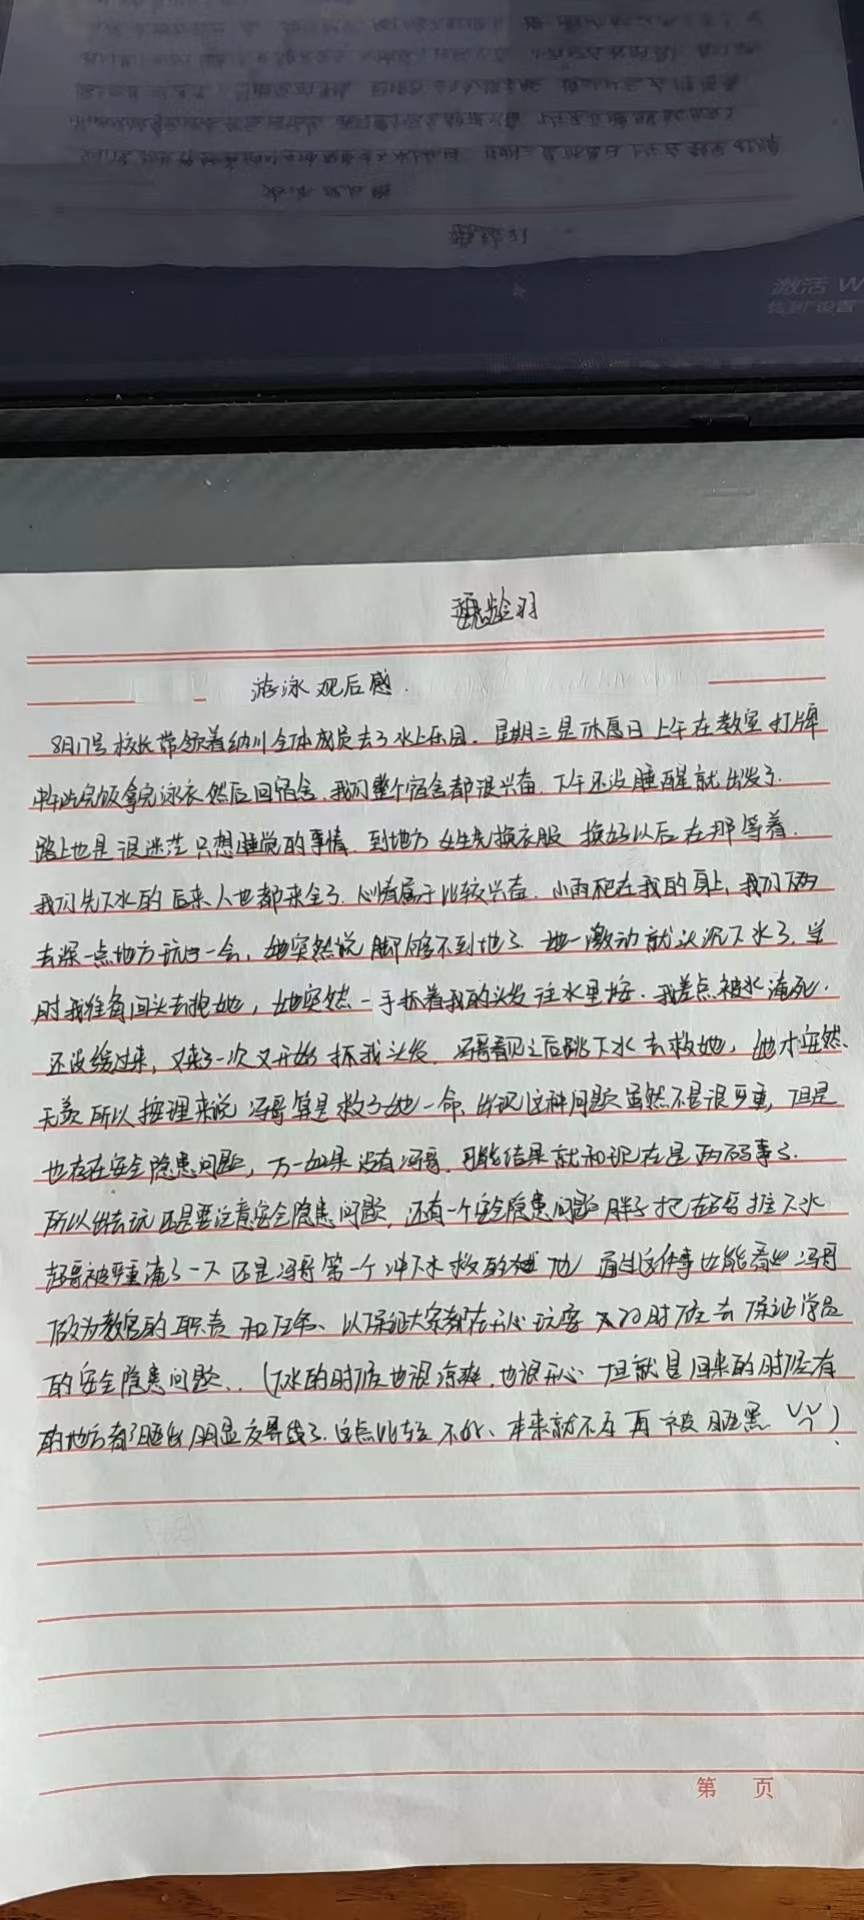 激活 W
转到"设置"
甄龄羽
游泳观后感.
8月17号校长带领着纳川全体成员去了水上乐园.星期三是休息日上午在教室打牌
中午吃完饭拿完泳衣然后回宿舍.我们整个宿舍都很兴奋.下午还没睡醒就出发了.
路上也是很迷茫只想睡觉的事情.到地方女生先换衣服 换好以后在那等着.
我们先下水的后来人也都来全了.心情属于比较兴奋.小雨爬在我的身上,我们俩
去深一点地方玩了一会,她突然说脚够不到地了 她一激动就沉下水了.当
时我准备回头去抱她,她突然一手抓着我的头发往水里按.我差点被水淹死.
还没缓过来,又来了一次又开始抓我头发.冯哥看见之后跳下水去救她,她才安然、
无恙所以按理来说冯哥算是救了她一命.出现这种问题虽然不是很严重,但是
也存在安全隐患问题,万一如果没有冯哥.可能结果就和现在是两码事了.
所以出去玩还是要注意安全隐患问题.还有一个安全隐患问题胖子把 推下水
超哥被严重淹了一下还是冯哥第一个冲下水救的他 通过这件事也能看出冯哥
做为教官的职责和任务、以保证大家都在开心玩耍 的时候去保证学员
的安全隐患问题..(下水的时候也很凉爽,也很开心 但就是回来的时候有
的地方都晒出明显交界线了.这点比较不好、本来就不白再被晒黑 )
第 页